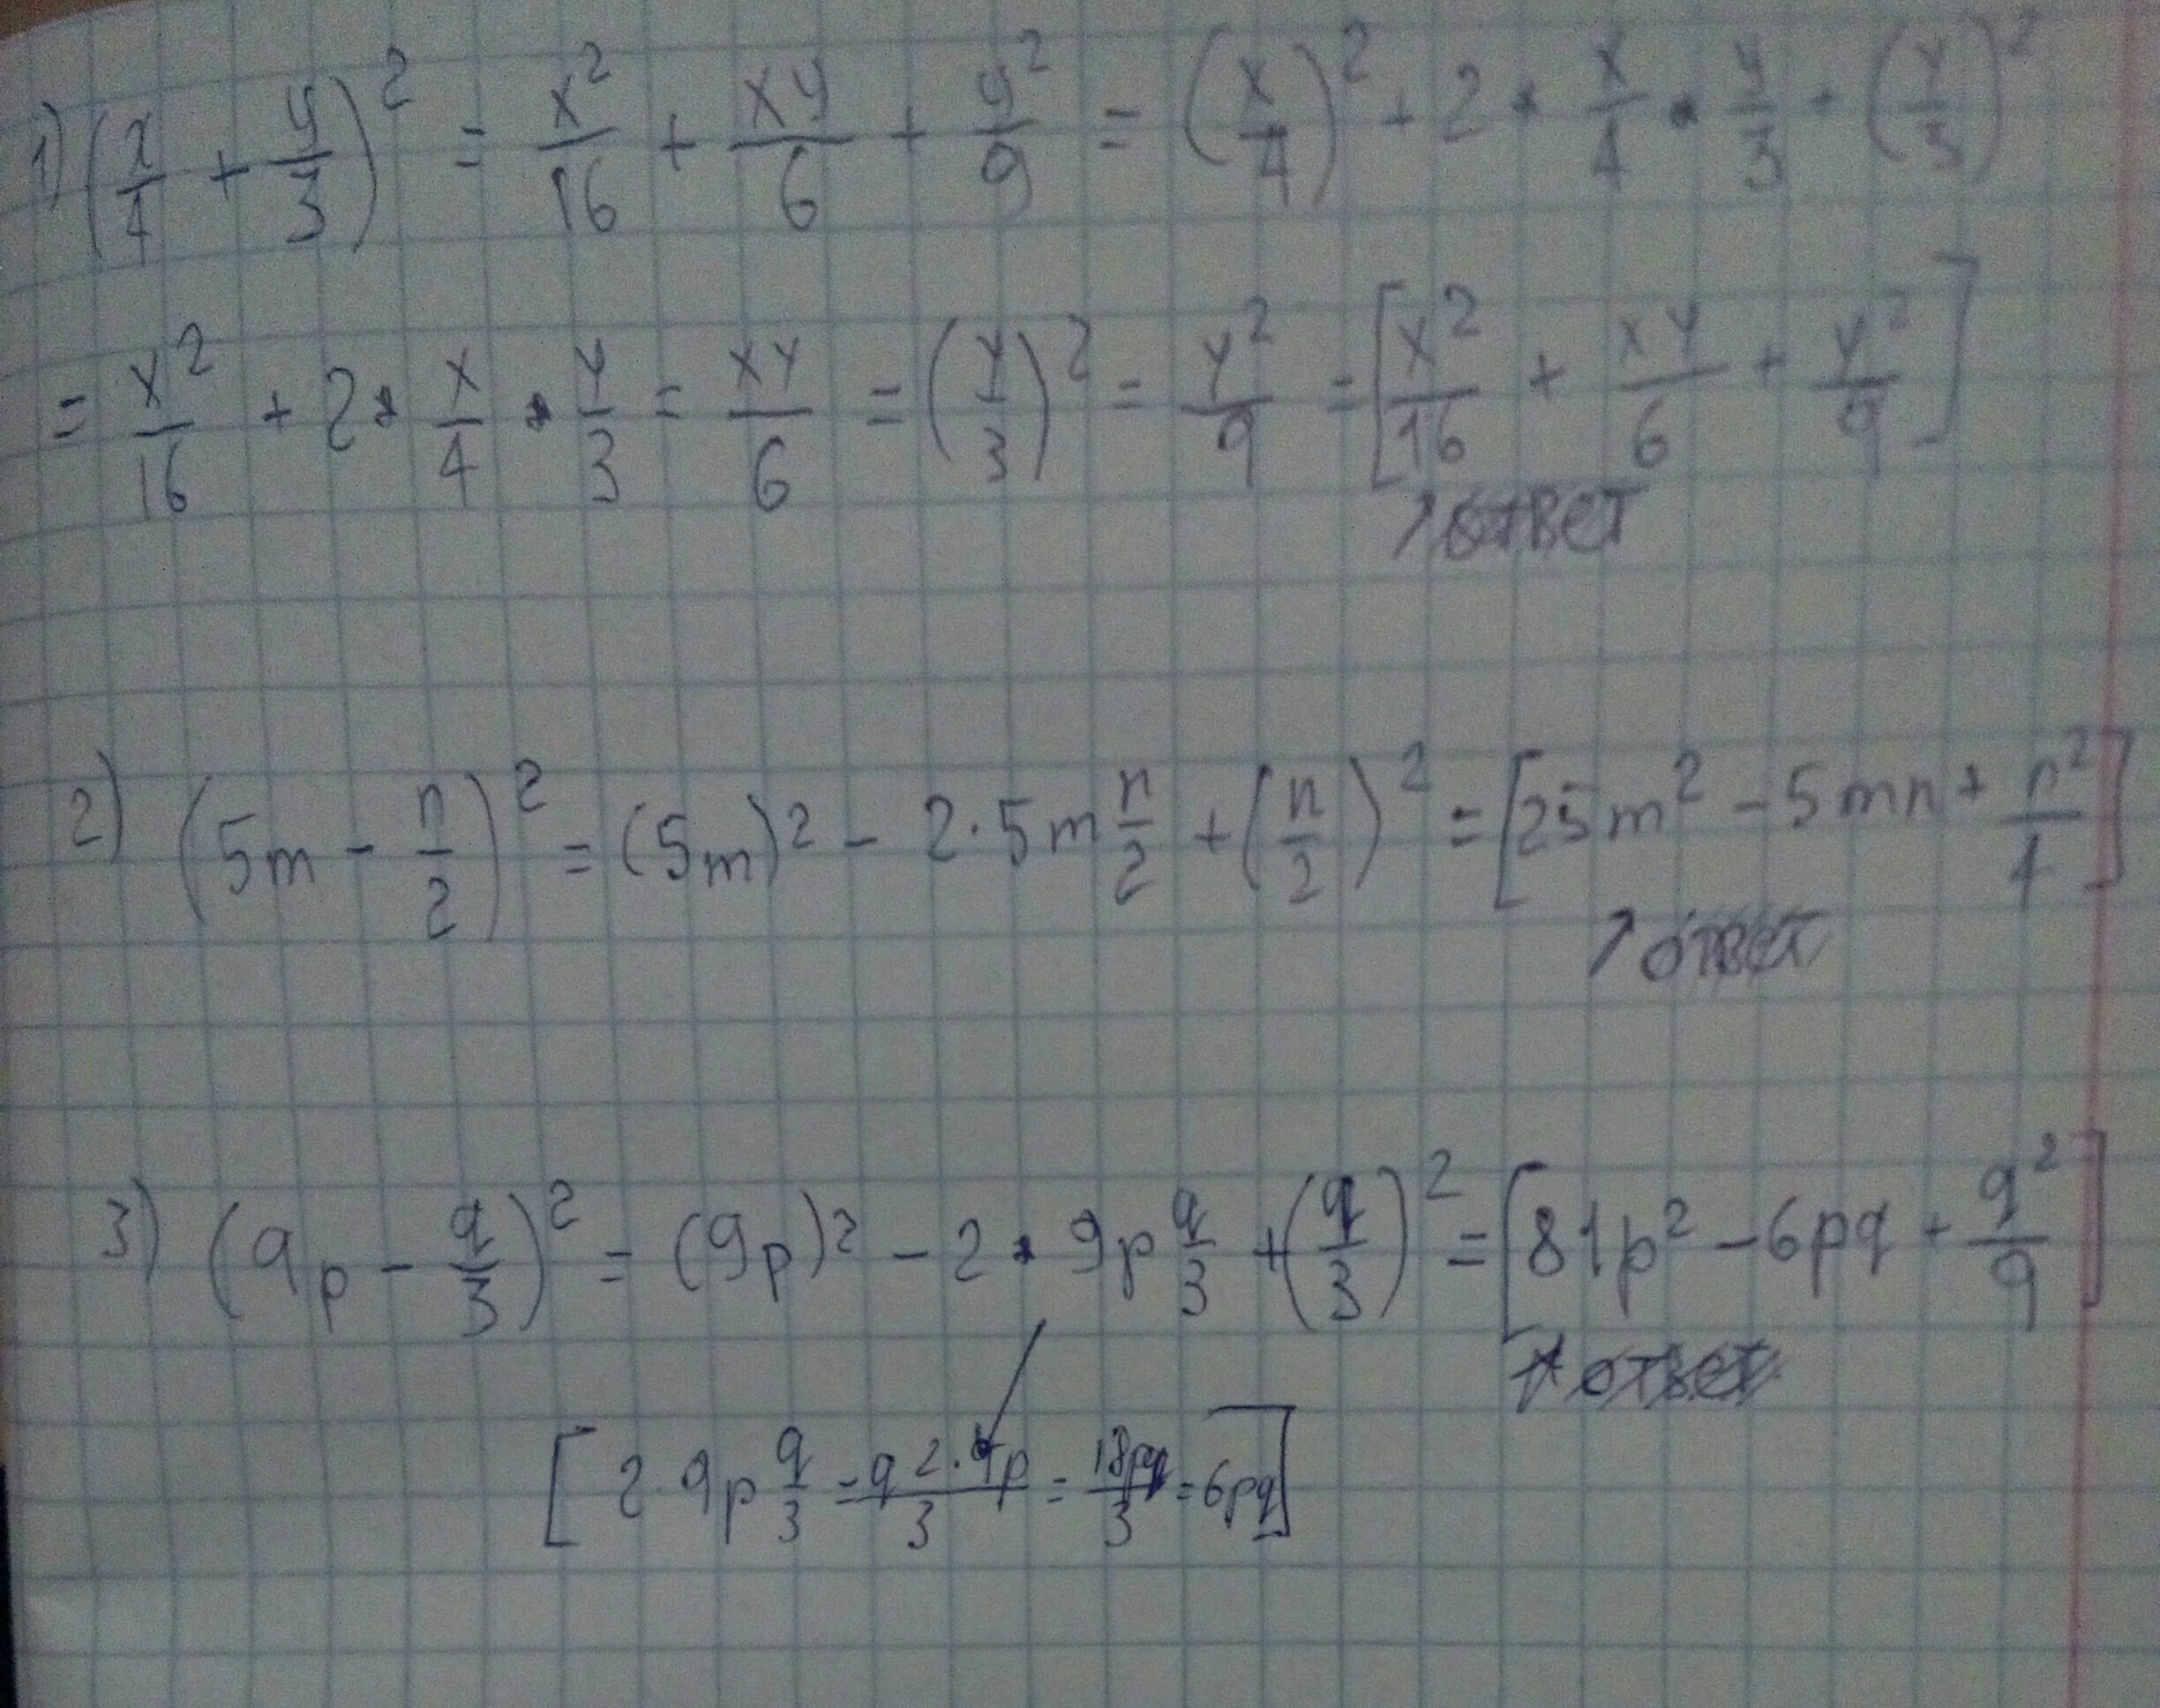 1) (x/4 + y/3)² = x²/16 + xy/6 + y²/9 = (x/4)² + 2 • x/4 • y/3 + (y/3)²
= x²/16 + 2 • x/4 • y/3 = xy/6 = (y/3)² = y²/9 = [x²/16 + xy/6 + y²/9]
↗ ответ
2) (5m - n/2)² = (5m)² - 2 · 5m n/2 + (n/2)² = [25m² - 5mn + n²/4]
↗ ответ
3) (9p - q/3)² = (9p)² - 2 • 9p q/3 + (q/3)² = [81p² - 6pq + q²/9]
↗ ответ
[2 · 9p q/3 = q 2·9p/3 = 18pq/3 = 6pq]